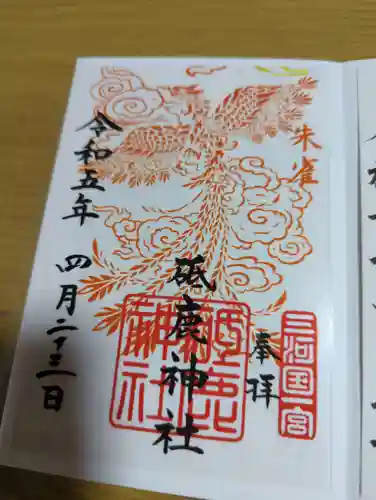 朱雀
三河国一宮
奉拝
砥鹿神社
砥鹿神社
令和五年
四月二十三日